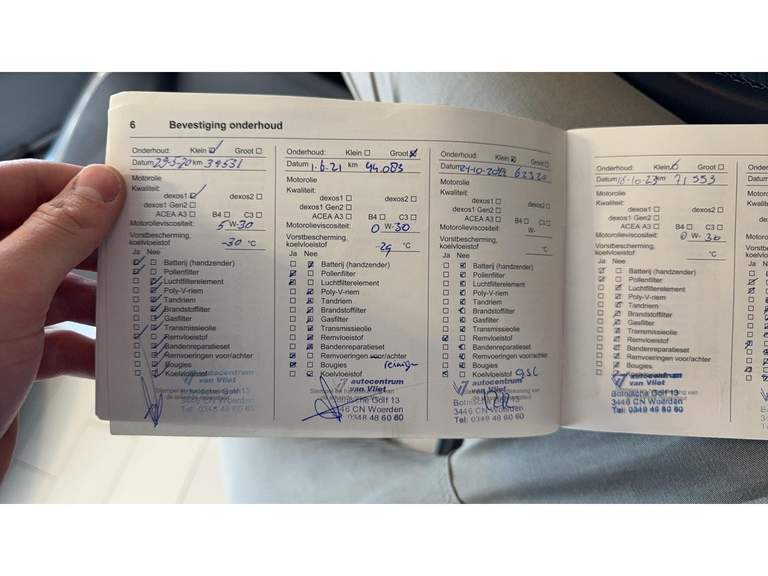 6 Bevestiging onderhoud
Onderhoud: Klein Groot
Datum 29-5-20 km 34531
Motorolie
Kwaliteit:
dexos1 dexos2
dexos1 Gen2
ACEA A3 B4 C3
Motorolieviscositeit: 5 W-30
Vorstbescherming,
koelvloeistof -30 °C
Ja Nee
Batterij (handzender)
Pollenfilter
Luchtfilterelement
Poly-V-riem
Tandriem
Brandstoffilter
Gasfilter
Transmissieolie
Remvloeistof
Bandenreparatieset
Remvoeringen voor/achter
Bougies
Koelvloeistof
autocentrum
van Vliet
3446 CN Woerden
Tel: 0348 48 60 60
Onderhoud: Klein Groot
Datum 1-6-21 km 44.083
Motorolie
Kwaliteit:
dexos1 dexos2
dexos1 Gen2
ACEA A3 B4 C3
Motorolieviscositeit: 0 W-30
Vorstbescherming,
koelvloeistof -29 °C
Ja Nee
Batterij (handzender)
Pollenfilter
Luchtfilterelement
Poly-V-riem
Tandriem
Brandstoffilter
Gasfilter
Transmissieolie
Remvloeistof
Bandenreparatieset
Remvoeringen voor/achter
Bougies
Koelvloeistof
autocentrum
van Vliet
The Golf 13
3446 CN Woerden
Tel: 0348 48 60 60
Onderhoud: Klein Groot
Datum km 62320
Motorolie
Kwaliteit:
dexos1 dexos2
dexos1 Gen2
ACEA A3 B4 C3
Motorolieviscositeit: W-
Vorstbescherming,
koelvloeistof °C
Ja Nee
Batterij (handzender)
Pollenfilter
Luchtfilterelement
Poly-V-riem
Tandriem
Brandstoffilter
Gasfilter
Transmissieolie
Remvloeistof
Bandenreparatieset
Remvoeringen voor/achter
Bougies
Koelvloeistof
autocentrum
van Vliet
3446 CN Woerden
Tel: 0348 48 60 60
Onderhoud: Klein Groot
Datum 16-10-23 km 71553
Motorolie
Kwaliteit:
dexos1 dexos2
dexos1 Gen2
ACEA A3 B4 C3
Motorolieviscositeit: 0 W-30
Vorstbescherming,
koelvloeistof °C
Ja Nee
Batterij (handzender)
Pollenfilter
Luchtfilterelement
Poly-V-riem
Tandriem
Brandstoffilter
Gasfilter
Transmissieolie
Remvloeistof
Bandenreparatieset
Remvoeringen voor/achter
Bougies
Koelvloeistof
autocentrum
van Vliet
Botnische Golf 13
3446 CN Woerden
Tel: 0348 48 60 60